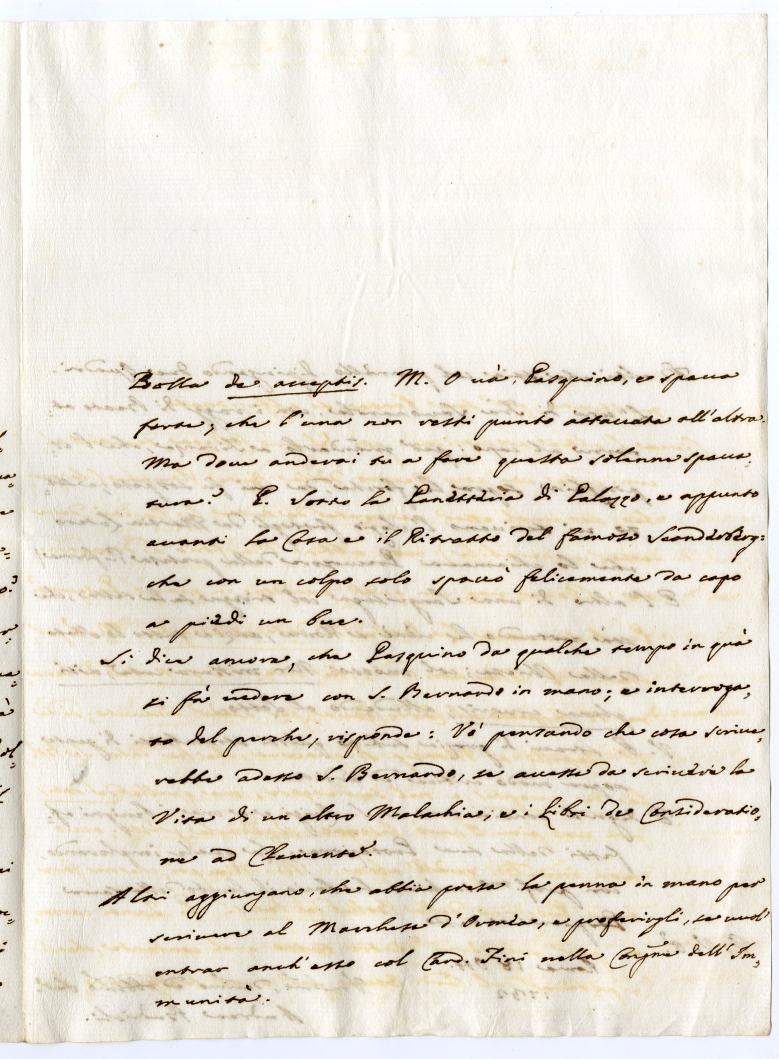 Bolla de acceptis. M. O và, Pasquino, e spacca
forte, che l'una non resti punto attaccata all'altra.
Ma dove anderai tu a fare questa solenne spacca,
tura? P. Sotto la Panatteria di Palazzo, e appunto
avanti la Casa e il Ritratto del famoso Scanderberg:
che con un colpo solo spaccò felicemente da capo
a piedi un bue.
Si dice ancora, che Pasquino da qualche tempo in quà
si fà vedere con S. Bernardo in mano; e interroga,
to del perche, risponde: Vò pensando che cosa scrive,
rebbe adesso S. Bernardo, se avesse da scrivere la
Vita di un altro Malachia; e i Libri de Consideratio,
ne ad Clemente.
Altri aggiungano, che abbia presa la penna in mano per
scrivere al Marchese d'Ormea, e proferirgli, se vuol
entrar anch'esso col Card. Fini nella Congne dell'Im,
munità.